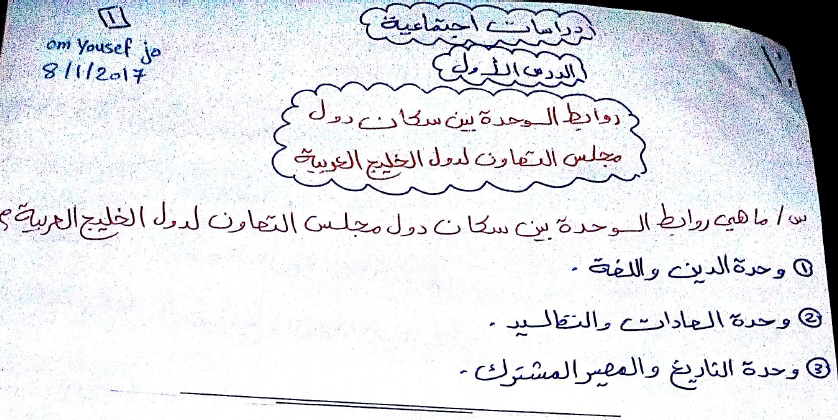 دراسات اجتماعية
1
om Yousef jo
8/1/2017
الدرس الأول
روابط الوحدة بين سكان دول
مجلس التعاون لدول الخليج العربية
س/ ما هي روابط الوحدة بين سكان دول مجلس التعاون لدول الخليج العربية؟
① وحدة الدين واللغة .
② وحدة العادات والتقاليد .
③ وحدة التاريخ والمصير المشترك .